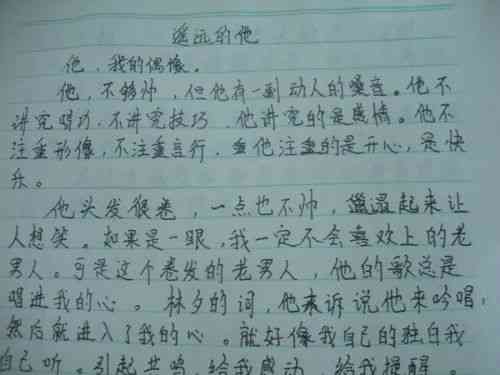 遥远的他
他，我的偶像。
他，不够帅，但他有一副动人的嗓音。他不
讲究唱功，不讲究技巧，他讲究的是感情。他不
注重形像，不注重言行，他注重的是开心，是快
乐。
他头发很卷，一点也不帅，起来让
人想笑。如果是一眼，我一定不会喜欢上的老
男人。可是这个卷发的老男人，他的歌总是
唱进我的心。林夕的词，他来诉说他来吟唱，
然后就进入了我的心。就好像我自己的独白我
自己听。引起共鸣，给我感动，给我提醒。